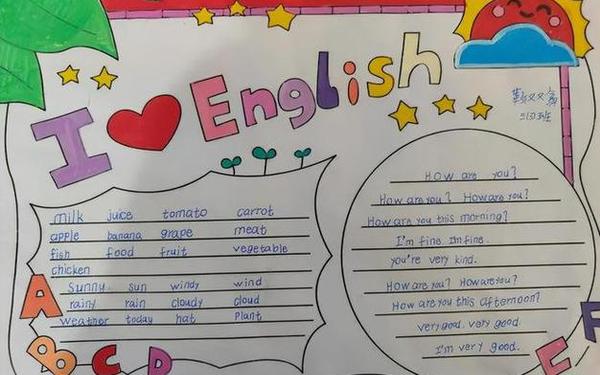 I English
二(3)班
milk juice tomato carrot
apple banana grape meat
fish food fruit vegetable
chicken
sunny sun windy wind
rainy rain cloudy cloud
weather today hat plant
A
B C D
How are you?
How are you? How are you?
How are you this morning?
I'm fine. I'm fine.
you're very kind.
How are you? How are you?
How are you this afternoon?
very good. very good.
I'm very good.
E F